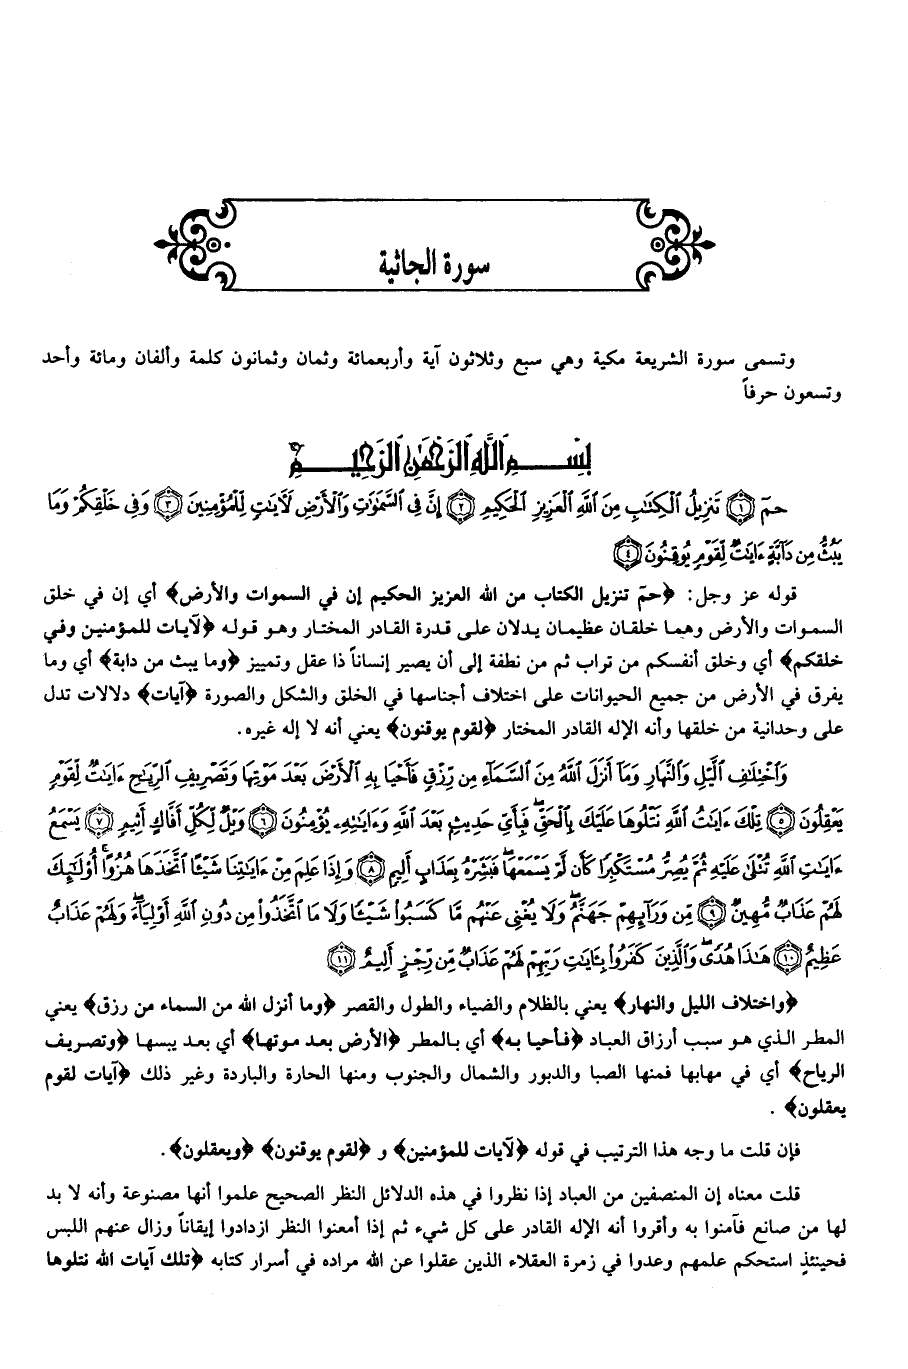 سورة الجاثية
وتسمى سورة الشريعة مكية وهي سبع وثلاثون آية وأربعمائة وثمان وثمانون كلمة وألفان ومائة وأحد
وتسعون حرفاً
بِسْمِ اللَّهِ الرَّحْمَٰنِ الرَّحِيمِ
حمٓ ﴿١﴾ تَنزِيلُ ٱلْكِتَٰبِ مِنَ ٱللَّهِ ٱلْعَزِيزِ ٱلْحَكِيمِ ﴿٢﴾ إِنَّ فِى ٱلسَّمَٰوَٰتِ وَٱلْأَرْضِ لَءَايَٰتٍ لِّلْمُؤْمِنِينَ ﴿٣﴾ وَفِى خَلْقِكُمْ وَمَا
يَبُثُّ مِن دَآبَّةٍ ءَايَٰتٌ لِّقَوْمٍ يُوقِنُونَ ﴿٤﴾
قوله عز وجل: ﴿حمّ تنزيل الكتاب من الله العزيز الحكيم إن في السموات والأرض﴾ أي إن في خلق
السموات والأرض وهما خلقان عظيمان يدلان على قدرة القادر المختار وهو قوله ﴿لآيات للمؤمنين وفي
خلقكم﴾ أي وخلق أنفسكم من تراب ثم من نطفة إلى أن يصير إنساناً ذا عقل وتمييز ﴿وما يبث من دابة﴾ أي وما
يفرق في الأرض من جميع الحيوانات على اختلاف أجناسها في الخلق والشكل والصورة ﴿آيات﴾ دلالات تدل
على وحدانية من خلقها وأنه الإله القادر المختار ﴿لقوم يوقنون﴾ يعني أنه لا إله غيره.
وَٱخْتِلَٰفِ ٱلَّيْلِ وَٱلنَّهَارِ وَمَآ أَنزَلَ ٱللَّهُ مِنَ ٱلسَّمَآءِ مِن رِّزْقٍ فَأَحْيَا بِهِ ٱلْأَرْضَ بَعْدَ مَوْتِهَا وَتَصْرِيفِ ٱلرِّيَٰحِ ءَايَٰتٌ لِّقَوْمٍ
يَعْقِلُونَ ﴿٥﴾ تِلْكَ ءَايَٰتُ ٱللَّهِ نَتْلُوهَا عَلَيْكَ بِٱلْحَقِّ فَبِأَىِّ حَدِيثٍ بَعْدَ ٱللَّهِ وَءَايَٰتِهِۦ يُؤْمِنُونَ ﴿٦﴾ وَيْلٌ لِّكُلِّ أَفَّاكٍ أَثِيمٍ ﴿٧﴾ يَسْمَعُ
ءَايَٰتِ ٱللَّهِ تُتْلَىٰ عَلَيْهِ ثُمَّ يُصِرُّ مُسْتَكْبِرًا كَأَن لَّمْ يَسْمَعْهَا فَبَشِّرْهُ بِعَذَابٍ أَلِيمٍ ﴿٨﴾ وَإِذَا عَلِمَ مِنْ ءَايَٰتِنَا شَيْـًٔا ٱتَّخَذَهَا هُزُوًا أُو۟لَٰٓئِكَ
لَهُمْ عَذَابٌ مُّهِينٌ ﴿٩﴾ مِّن وَرَآئِهِمْ جَهَنَّمُ وَلَا يُغْنِى عَنْهُم مَّا كَسَبُوا۟ شَيْـًٔا وَلَا مَا ٱتَّخَذُوا۟ مِن دُونِ ٱللَّهِ أَوْلِيَآءَ وَلَهُمْ عَذَابٌ
عَظِيمٌ ﴿١٠﴾ هَٰذَا هُدًى وَٱلَّذِينَ كَفَرُوا۟ بِـَٔايَٰتِ رَبِّهِمْ لَهُمْ عَذَابٌ مِّن رِّجْزٍ أَلِيمٌ ﴿١١﴾
﴿واختلاف الليل والنهار﴾ يعني بالظلام والضياء والطول والقصر ﴿وما أنزل الله من السماء من رزق﴾ يعني
المطر الذي هو سبب أرزاق العباد ﴿فأحيا به﴾ أي بالمطر ﴿الأرض بعد موتها﴾ أي بعد يبسها ﴿وتصريف
الرياح﴾ أي في مهابها فمنها الصبا والدبور والشمال والجنوب ومنها الحارة والباردة وغير ذلك ﴿آيات لقوم
يعقلون﴾ .
فإن قلت ما وجه هذا الترتيب في قوله ﴿لآيات للمؤمنين﴾ و ﴿لقوم يوقنون﴾ ﴿ويعقلون﴾.
قلت معناه إن المنصفين من العباد إذا نظروا في هذه الدلائل النظر الصحيح علموا أنها مصنوعة وأنه لا بد
لها من صانع فآمنوا به وأقروا أنه الإله القادر على كل شيء ثم إذا أمعنوا النظر ازدادوا إيقاناً وزال عنهم اللبس
فحينئذٍ استحكم علمهم وعدوا في زمرة العقلاء الذين عقلوا عن الله مراده في أسرار كتابه ﴿تلك آيات الله نتلوها